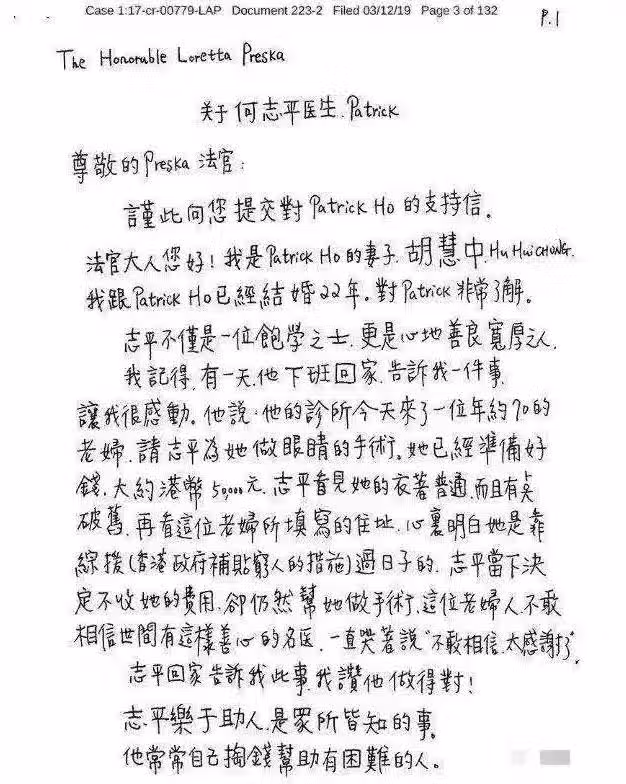 Case 1:17-cr-00779-LAP Document 223-2 Filed 03/12/19 Page 3 of 132
P.1
The Honorable Loretta Preska
关于何志平医生.Patrick
尊敬的Preska 法官:
謹此向您提交對Patrick Ho的支持信。
法官大人您好!我是Patrick Ho的妻子.胡慧中.Hu Hui CHONG.
我跟Patrick Ho已經結婚22年。對Patrick非常了解。
志平不僅是一位飽學之士.更是心地善良寬厚之人.
我記得.有一天.他下班回家.告訴我一件事.
讓我很感動。他說:他的診所今天來了一位年約70的
老婦.請志平為她做眼睛的手術。她已經準備好
錢.大約港幣50,000元.志平看見她的衣著普通.而且有點
破舊.再看這位老婦所填寫的住址.心裏明白她是靠
綜援(香港政府補貼窮人的措施)過日子的.志平當下決
定不收她的費用.卻仍然幫她做手術.這位老婦人不敢
相信世間有這樣善心的名医.一直哭著說"不敢相信.太感謝了".
志平回家告訴我此事.我讚他做得對!
志平樂于助人.是眾所皆知的事。
他常常自己掏錢幫助有困難的人。